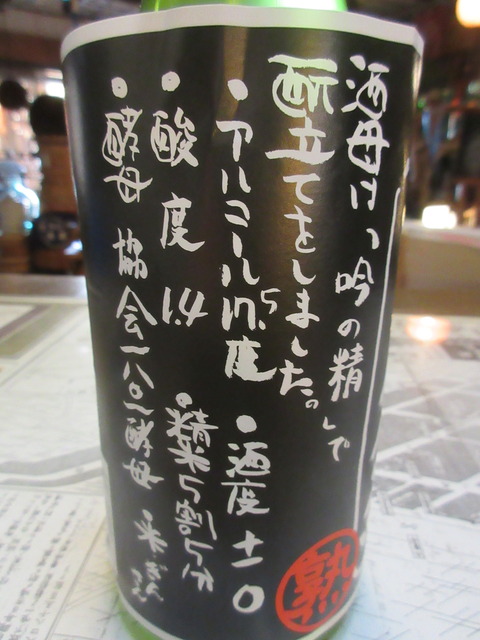 酒母は、「吟の精」で
酛立てをしました。
・アルコール17.5度 ・酒度+10
・酸度 1.4 ・精米5割5分
・酵母 協会一八〇一酵母 ・米
熟